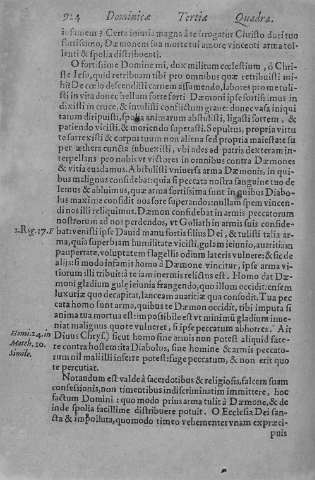 924 Dominicæ Tertiæ Quadra.
tissimo, Dæmonem sua morte tui amore vincenti arma tol-
lenti & spolia distribuenti.
O fortissime Domine mi, dux militum cœlestium, ô Chri-
ste Iesu, quid retribuam tibi pro omnibus quæ retribuisti mi-
hi? De cœlo descendisti carnem assumendo, labores pro me tuli-
sti in vita donec bellum forte forti Dæmoni ipse fortissimus in-
dixisti in cruce, & inuisibili conflictu graui: donec vasa iniqui
tatum diripuisti, spolia animarum abstulisti, ligasti fortem, &
patiendo vicisti, & moriendo superasti. Sepultus, propria virtu
te surrexisti & corpus tuum non aliena sed propria maiestate su
per æthera cuncta subuexisti, vbi ades ad patris dexteram in-
terpellans pro nobis vt victores in omnibus contra Dæmones
& vitia euadamus. Abstulisti vniuersa arma Dæmonis, in qui-
bus malignus confidebat: quia si peccata nostra sanguine tuo de
lemus & abluimus, quæ arma fortissima sunt in quibus Diabo-
lus maxime confidit nos fore superandos: nullam spem vincen-
di nos illi reliquimus. Dæmon confidebat in armis peccatorum
nostrorum ad nos perdendos, vt Goliath in armis suis confide-
2. Reg. 17. bat: venisti ipse Dauid manu fortis filius Dei, & tulisti talia ar-
ma, quia superbiam humilitate vicisti, gulam ieiunio, auaritiam
paupertate, voluptatem flagellis odium lateris vulnere: & sic de
alijs: si modo infamis homo à Dæmone vincitur, ipse arma vi-
tiorum illi tribuit à te iam inermis relictus est. Homo dat Dæ-
moni gladium gulæ ieiunia frangendo, quo illum occidit: ensem
luxuriæ quo decapitat, lanceam auaritiæ qua confodit. Tua pec
cata homo sunt arma, quibus te Dæmon occidit, tibi imputa si
anima tua mortua est: impossibile est vt minimum gladium inue-
niat malignus quo te vulneret, si ipse peccatum abhorres. Ait
Homi. 24. in Diuus Chrys. sicut homo sine armis non potest aliquid face-
Matth. 20. re contra hostem ita Diabolus, sine homine & armis peccato-
Simile. rum nil mali illi inferre potest: fuge peccatum, & non erit quo
te percutiat.
Notandum est valde à sacerdotibus & religiosis, saltem suam
confessionis, non timentibus indiscriminatim immittere, hoc
factum Domini: quo modo prius arma tulit à Dæmone, & de
inde spolia facillime distribuere potuit. O Ecclesia Dei san-
cta & impolluta, quomodo timeo vehementer vnam ex præci-
puis